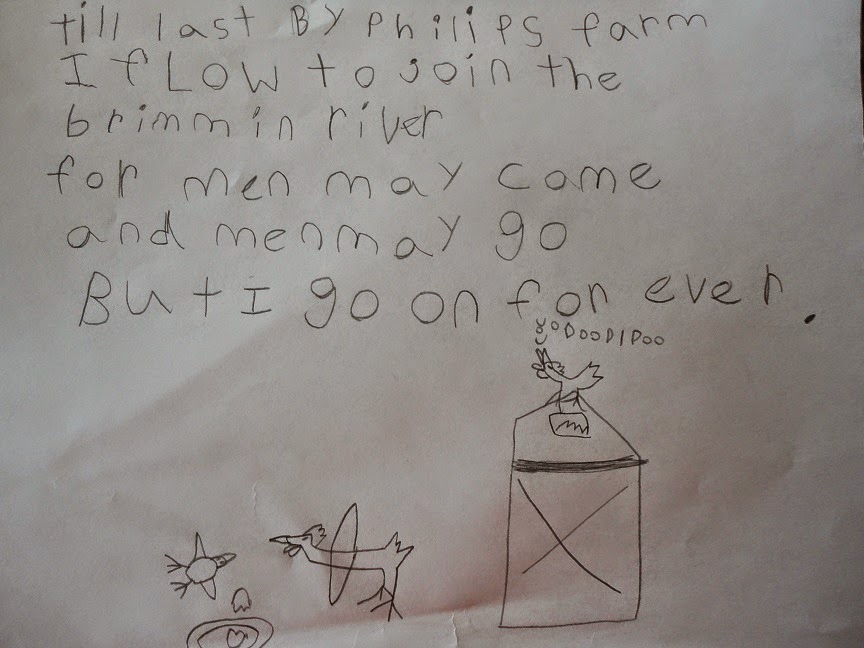 till last By Philips farm
I fLOW to join the
brimmin river
for men may come
and men may go
But I go on for ever.